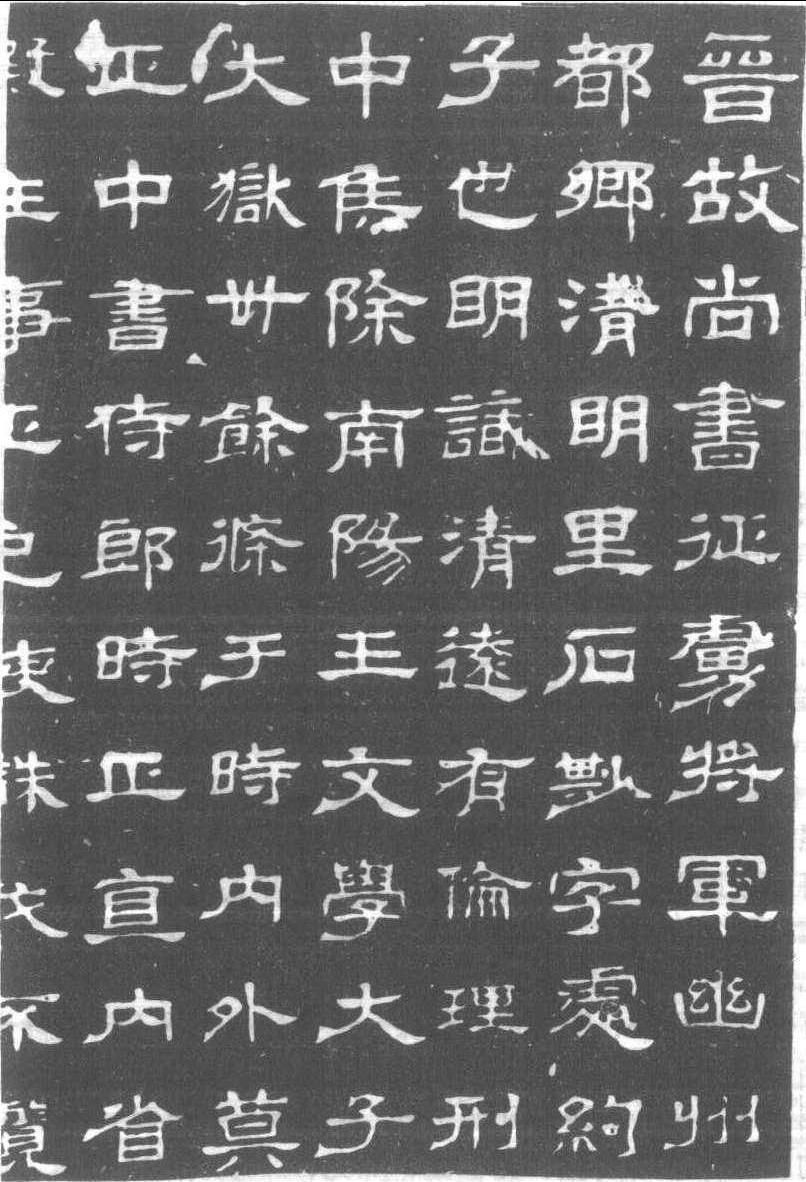 晉故尚書征虜將軍幽州
都鄉清眀里石尠字處約
子也眀識清遠有倫理刑
中隽除南陽王文學大子
大獄卅餘條于時內外莫
正中書侍郎時正直內省
事正色不